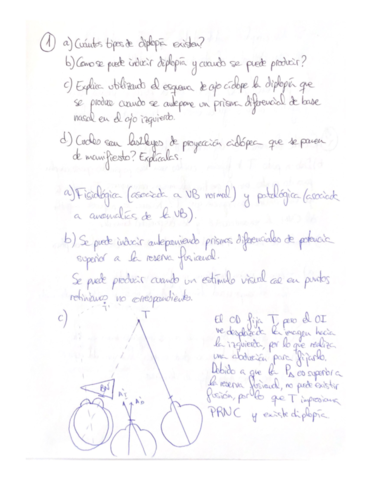 ① a) ¿Cuántos tipos de diplopía existen?
b) Cómo se puede inducir diplopía y cuando se puede producir?
c) Explica utilizando el esquema de ojo cíclope la diplopía que
se produce cuando se antepone un prisma diferencial de base
nasal en el ojo izquierdo.
d) Cuáles son las leyes de proyección ciclópea que se ponen
de manifiesto? Explícalas.
a) Fisiológica (asociada a VB normal) y patológica (asociada
a anomalías de la VB).
b) Se puede inducir anteponiendo prismas diferenciales de potencia
superior a la reserva fusional.
Se puede producir cuando un estímulo visual cae en puntos
retinianos no correspondientes.
c)
T
BN
El OD fija T, pero el OI
ve desplazada la imagen hacia
la izquierda, por lo que realiza
una abducción para fijarla.
Debido a que la P△ es superior a
la reserva fusional, no puede existir
fusión, por lo que T impresiona
PRNC y existe diplopía